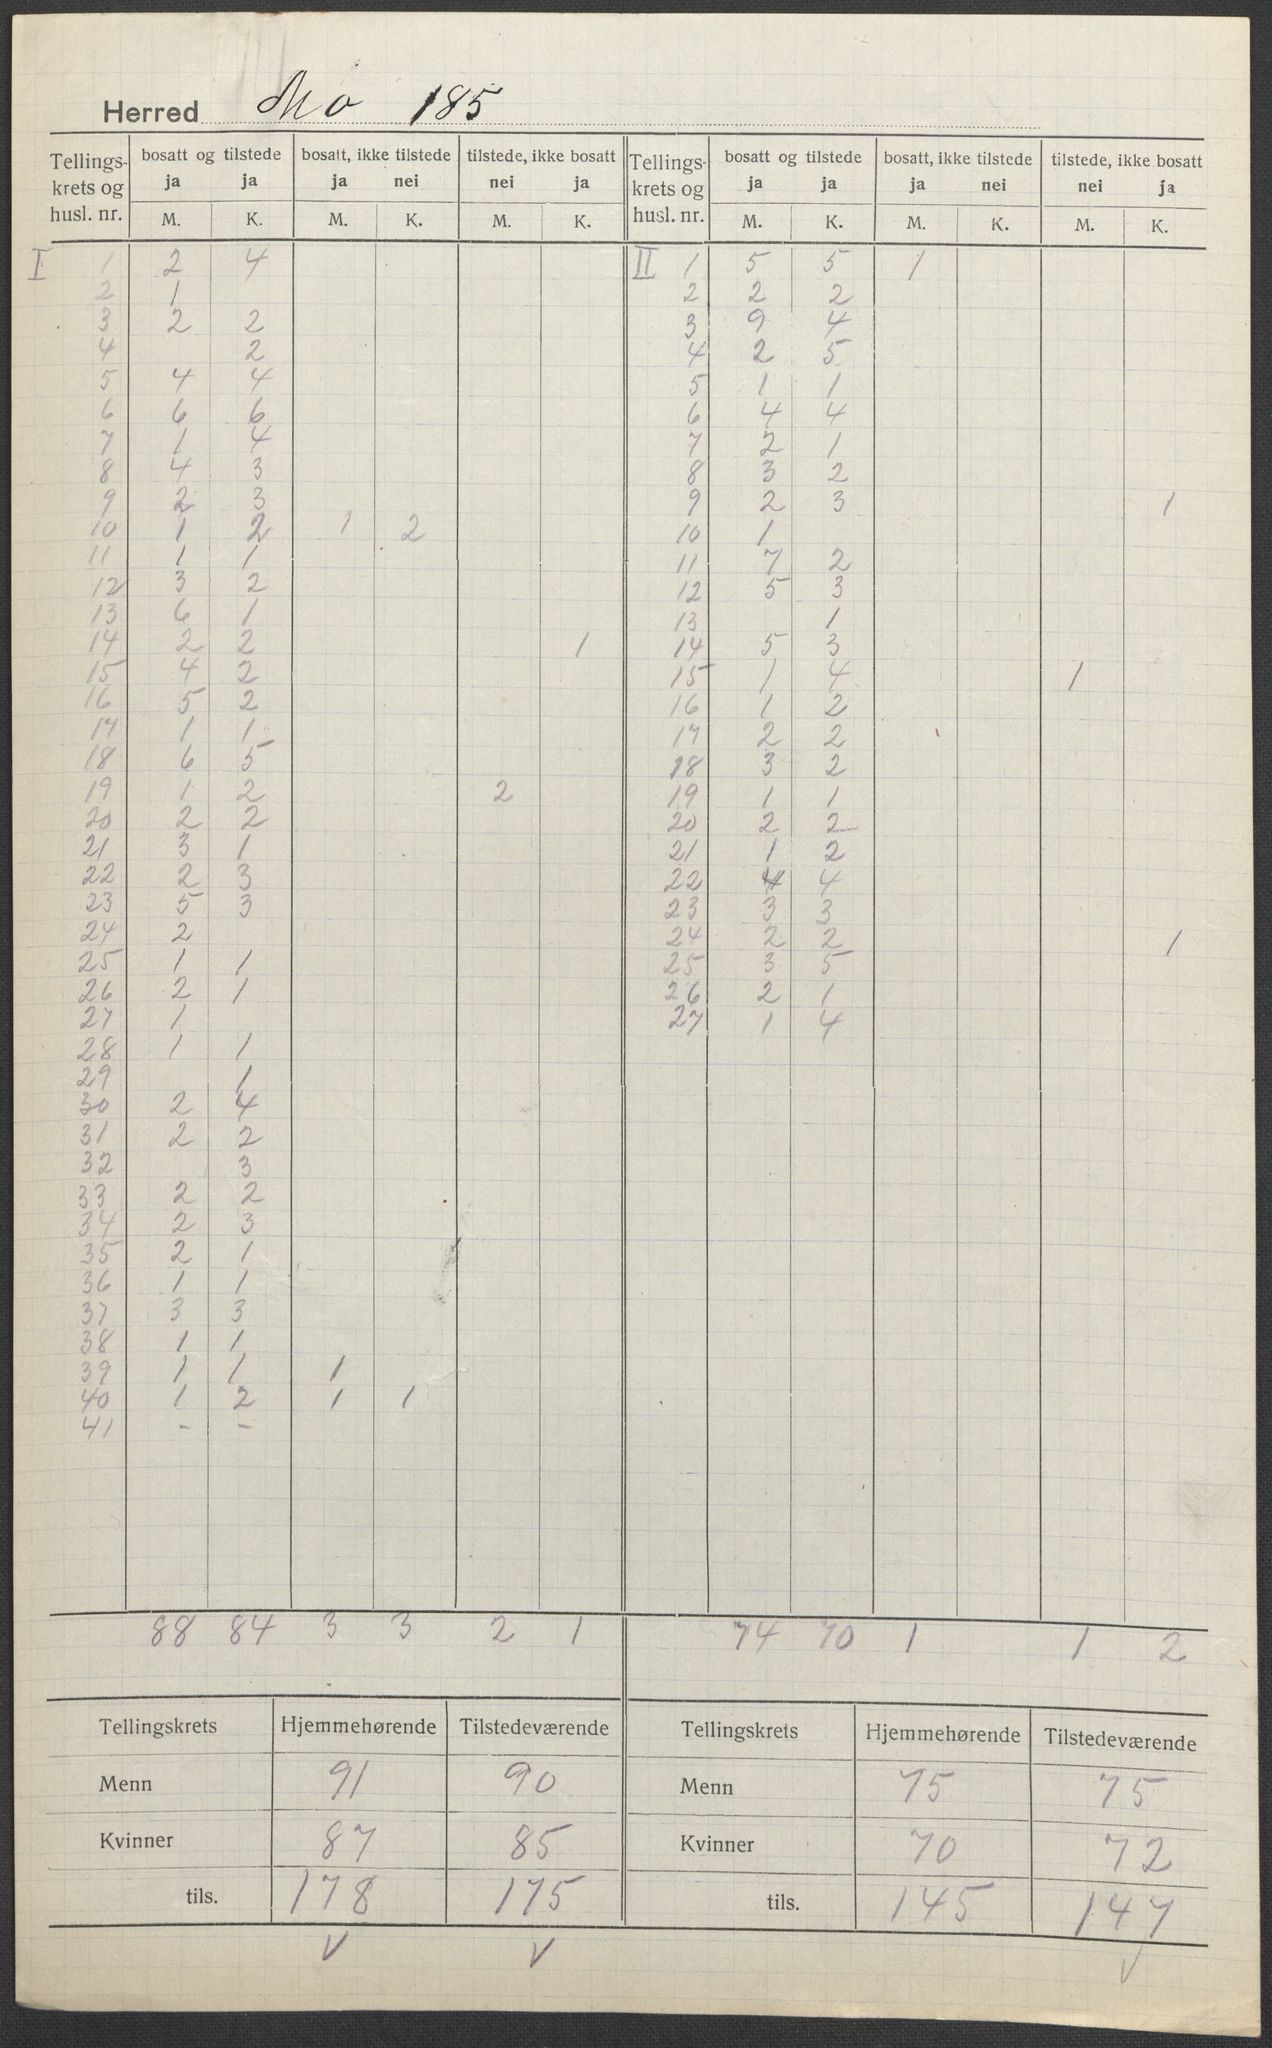 Herred Mo 185
Tellings- krets og husl. nr. | bosatt og tilstede ja ja M. K. | bosatt, ikke tilstede ja nei M. K. | tilstede, ikke bosatt nei ja M. K. | Tellings- krets og husl. nr. | bosatt og tilstede ja ja M. K. | bosatt, ikke tilstede ja nei M. K. | tilstede, ikke bosatt nei ja M. K.
I 1 2 4 | II 1 5 5 1
2 1 | 2 2 2
3 2 2 | 3 9 4
4 2 | 4 2 5
5 4 4 | 5 1 1
6 6 6 | 6 4 4
7 1 4 | 7 2 1
8 4 3 | 8 3 2
9 2 3 | 9 2 3 1
10 1 2 1 2 | 10 1
11 1 1 | 11 7 2
12 3 2 | 12 5 3
13 6 1 | 13 1
14 2 2 1 | 14 5 3
15 4 2 | 15 1 4 1
16 5 2 | 16 1 2
17 1 1 | 17 2 2
18 6 5 | 18 3 2
19 1 2 2 | 19 1 1
20 2 2 | 20 2 2
21 3 1 | 21 1 2
22 2 3 | 22 4 4
23 5 3 | 23 3 3
24 2 | 24 2 2 1
25 1 1 | 25 3 5
26 2 1 | 26 2 1
27 1 | 27 1 4
28 1 1
29 1
30 2 4
31 2 2
32 3
33 2 2
34 2 3
35 2 1
36 1 1
37 3 3
38 1 1
39 1 1 1
40 1 2 1 1
41 - -
88 84 3 3 2 1 | 74 70 1 1 2
Tellingskrets Hjemmehørende Tilstedeværende | Tellingskrets Hjemmehørende Tilstedeværende
Menn 91 90 | Menn 75 75
Kvinner 87 85 | Kvinner 70 72
tils. 178 175 | tils. 145 147
V V V